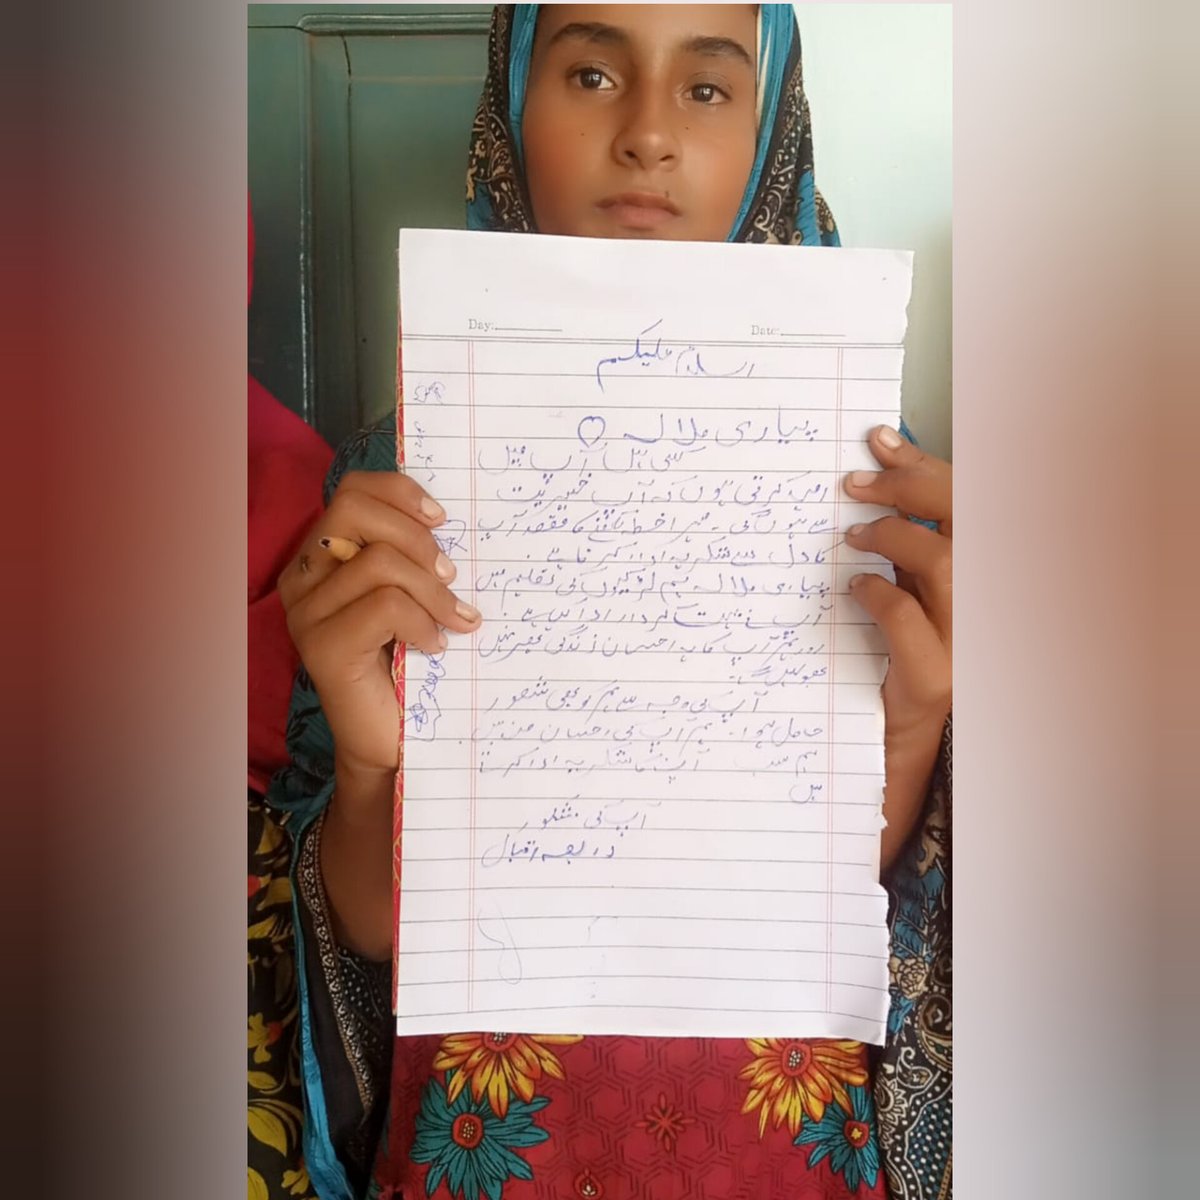 Day:
Date:
اسلام علیکم
پیاری ملالہ
کیسی ہیں آپ میں
امید کرتی ہوں کہ آپ خیریت
سے ہوں گی۔ میرا خط لکھنے کا مقصد آپ
کا دل سے شکریہ ادا کرنا ہے۔
پیاری ملالہ ہم لڑکیوں کی تعلیم میں
آپ نے بہت کردار ادا کیا ہے۔
اور ہم آپ کا یہ احسان زندگی بھر نہیں
بھولیں گے۔
آپ کی وجہ سے ہم کو بھی شعور
حاصل ہوا۔ ہم آپ کی احسان مند ہیں۔
ہم سب آپ کا شکریہ ادا کرتے
ہیں
آپ کی مشکور
اقبال